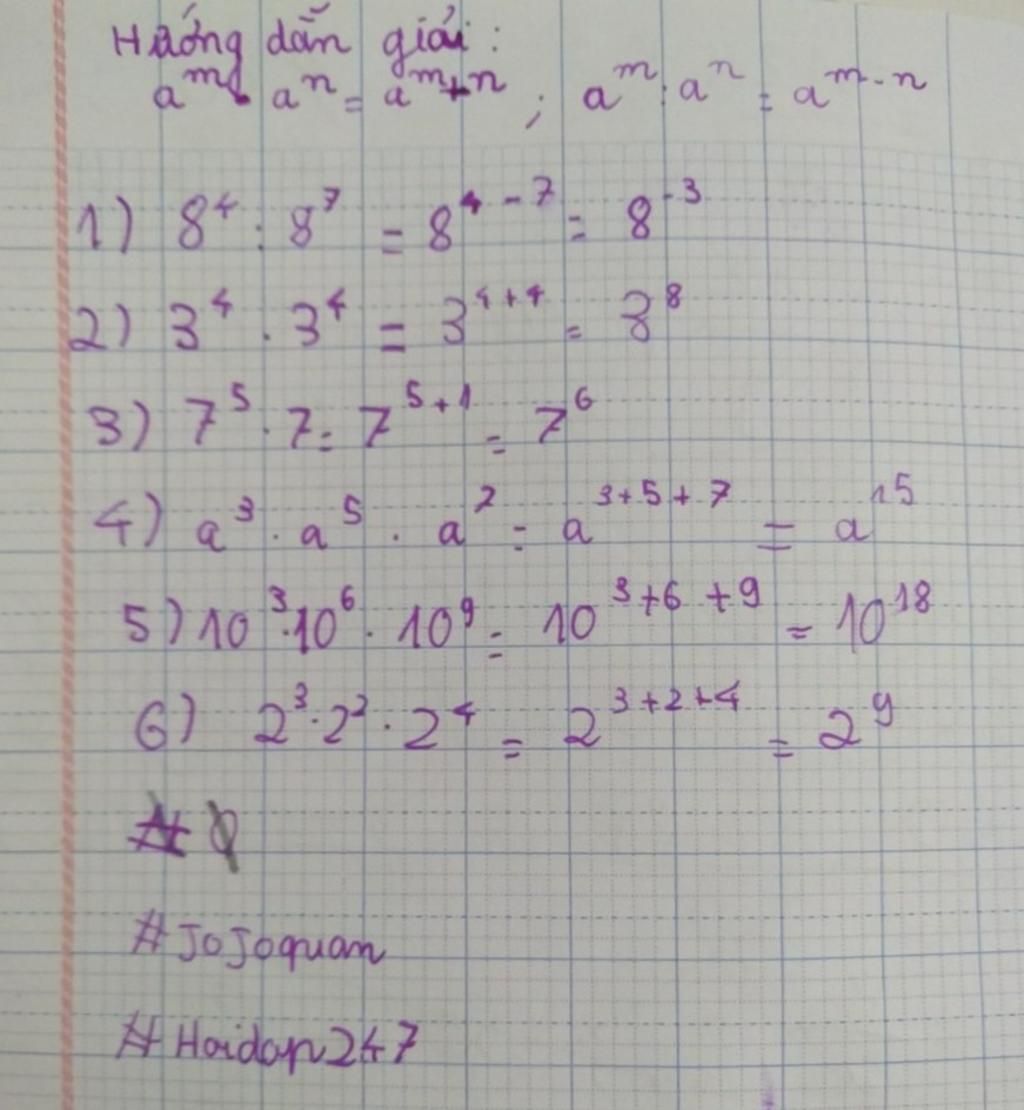 Hướng dẫn giải :
a^m . a^n = a^{m+n} ; a^m : a^n = a^{m-n}
1) 8^4 : 8^7 = 8^{4-7} = 8^{-3}
2) 3^4 . 3^4 = 3^{4+4} = 3^8
3) 7^5 . 7 = 7^{5+1} = 7^6
4) a^3 . a^5 . a^7 = a^{3+5+7} = a^{15}
5) 10^3 . 10^6 . 10^9 = 10^{3+6+9} = 10^{18}
6) 2^3 . 2^2 . 2^4 = 2^{3+2+4} = 2^9
#JoJoquan
#Hoidap247